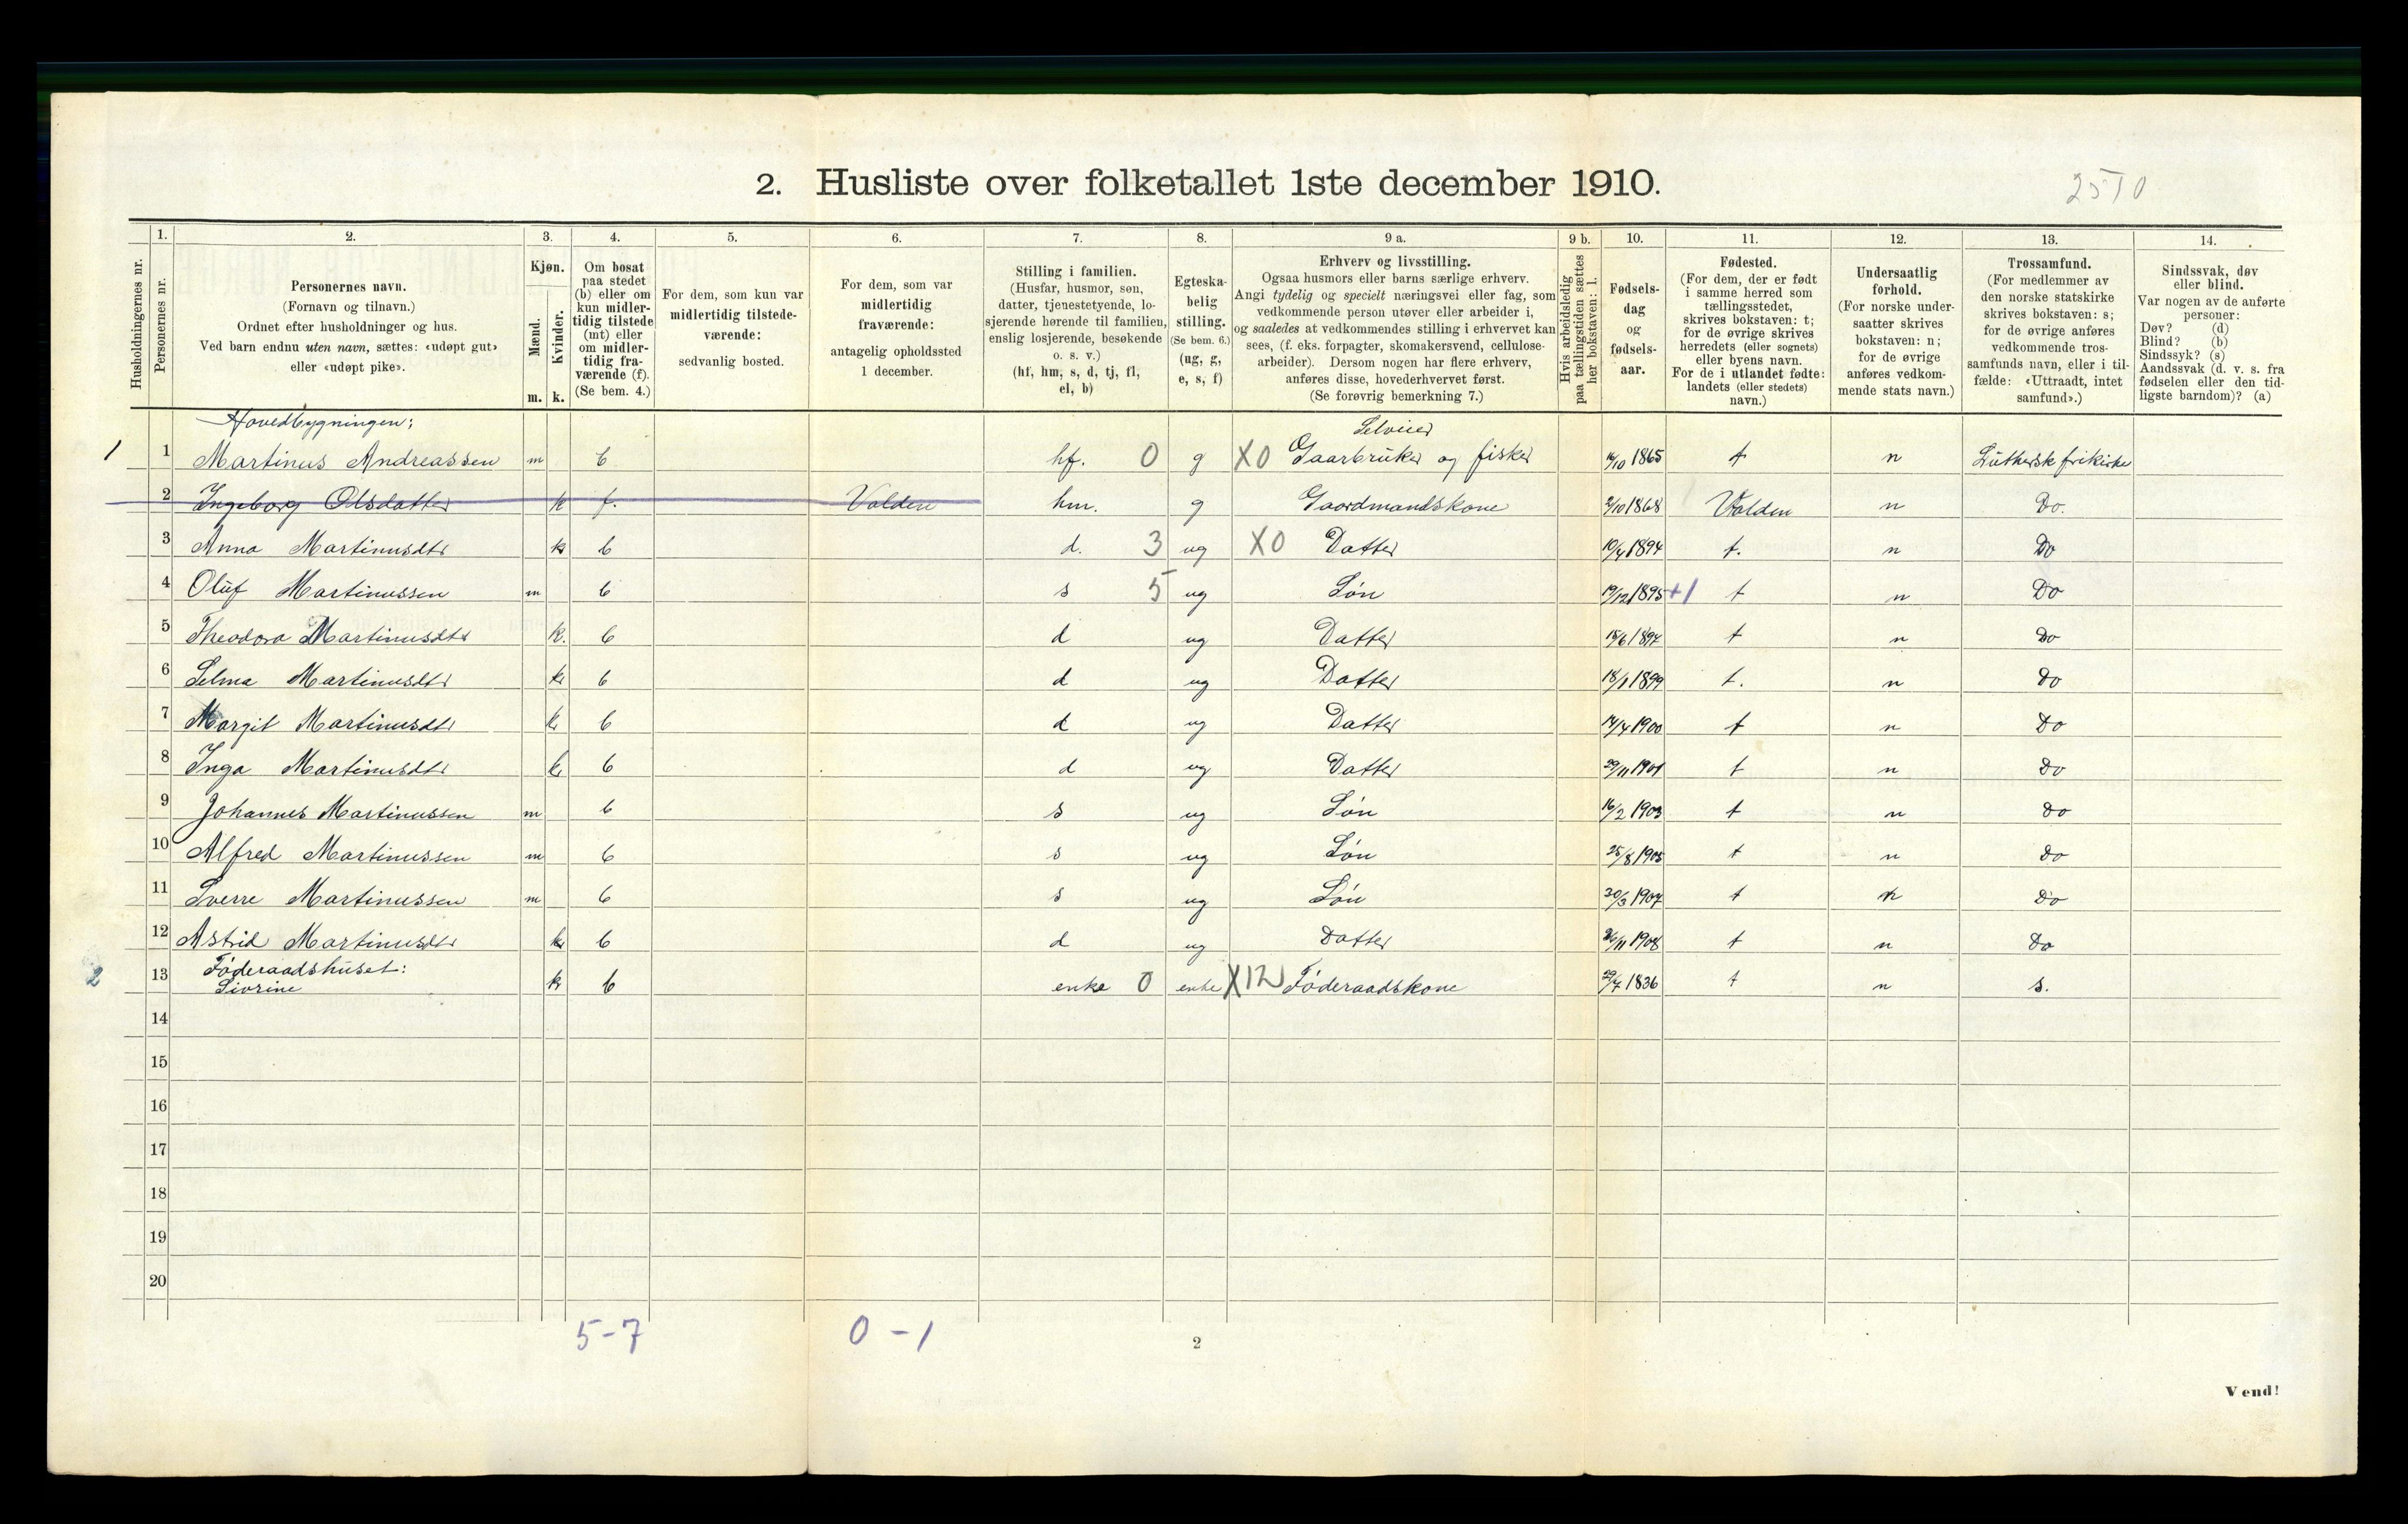 2. Husliste over folketallet 1ste december 1910.
2510
1. 2. 3. 4. 5. 6. 7. 8. 9 a. 9 b. 10. 11. 12. 13. 14.
Husholdningernes nr.
Personernes nr.
Personernes navn.
(Fornavn og tilnavn.)
Ordnet efter husholdninger og hus.
Ved barn endnu uten navn, sættes: «udøpt gut»
eller «udøpt pike».
Kjøn.
Mænd.
Kvinder.
m. k.
Om bosat
paa stedet
(b) eller om
kun midler-
tidig tilstede
(mt) eller
om midler-
tidig fra-
værende (f).
(Se bem. 4.)
For dem, som kun var
midlertidig tilstede-
værende:
sedvanlig bosted.
For dem, som var
midlertidig
fraværende:
antagelig opholdssted
1 december.
Stilling i familien.
(Husfar, husmor, søn,
datter, tjenestetyende, lo-
sjerende hørende til familien,
enslig losjerende, besøkende
o. s. v.)
(hf, hm, s, d, tj, fl,
el, b)
Egteska-
belig
stilling.
(Se bem. 6.)
(ug, g,
e, s, f)
Erhverv og livsstilling.
Ogsaa husmors eller barns særlige erhverv.
Angi tydelig og specielt næringsvei eller fag, som
vedkommende person utøver eller arbeider i,
og saaledes at vedkommendes stilling i erhvervet kan
sees, (f. eks. forpagter, skomakersvend, cellulose-
arbeider). Dersom nogen har flere erhverv,
anføres disse, hovederhvervet først.
(Se forøvrig bemerkning 7.)
Hvis arbeidsledig
paa tællingstiden sættes
her bokstaven: l.
Fødsels-
dag
og
fødsels-
aar.
Fødested.
(For dem, der er født
i samme herred som
tællingsstedet,
skrives bokstaven: t;
for de øvrige skrives
herredets (eller sognets)
eller byens navn.
For de i utlandet fødte:
landets (eller stedets)
navn.)
Undersaatlig
forhold.
(For norske under-
saatter skrives
bokstaven: n;
for de øvrige
anføres vedkom-
mende stats navn.)
Trossamfund.
(For medlemmer av
den norske statskirke
skrives bokstaven: s;
for de øvrige anføres
vedkommende tros-
samfunds navn, eller i til-
fælde: «Uttraadt, intet
samfund».)
Sindssvak, døv
eller blind.
Var nogen av de anførte
personer:
Døv? (d)
Blind? (b)
Sindssyk? (s)
Aandssvak (d. v. s. fra
fødselen eller den tid-
ligste barndom)? (a)
Hovedbygningen: Selveier
1 1 Martinus Andreassen m b hf. 0 g X0 Gaarbruker og fisker 1865 t n Luthersk frikirke
2 Ingeborg Olsdatter k f. Valden hm. g Gaardmandskone 2/10 1868 Valden n Do.
3 Anna Martinusdtr k b d. 3 ug X0 Datter 10/4 1894 t. n Do
4 Oluf Martinussen m b s 5 ug Søn 19/12 1895 +1 t n Do
5 Theodora Martinusdtr k. b d ug Datter 15/6 1897 t n Do
6 Selma Martinusdtr k b d ug Datter 18/1 1899 t. n Do
7 Margit Martinusdtr k b d ug Datter 14/4 1900 t n Do
8 Inga Martinusdtr k b d ug Datter 29/11 1901 t n Do
9 Johannes Martinussen m b s ug Søn 16/2 1903 t n Do
10 Alfred Martinussen m b s ug Søn 25/8 1905 t n Do
11 Sverre Martinussen m b s ug Søn 30/3 1907 t n Do
12 Astrid Martinusdtr k b d ug Datter 26/11 1908 t n Do
Føderaadshuset:
2 13 Sivrine k b enke 0 enke X12 Føderaadskone 29/7 1836 t n s.
14
15
16
17
18
19
20
5-7 0-1
2
Vend!